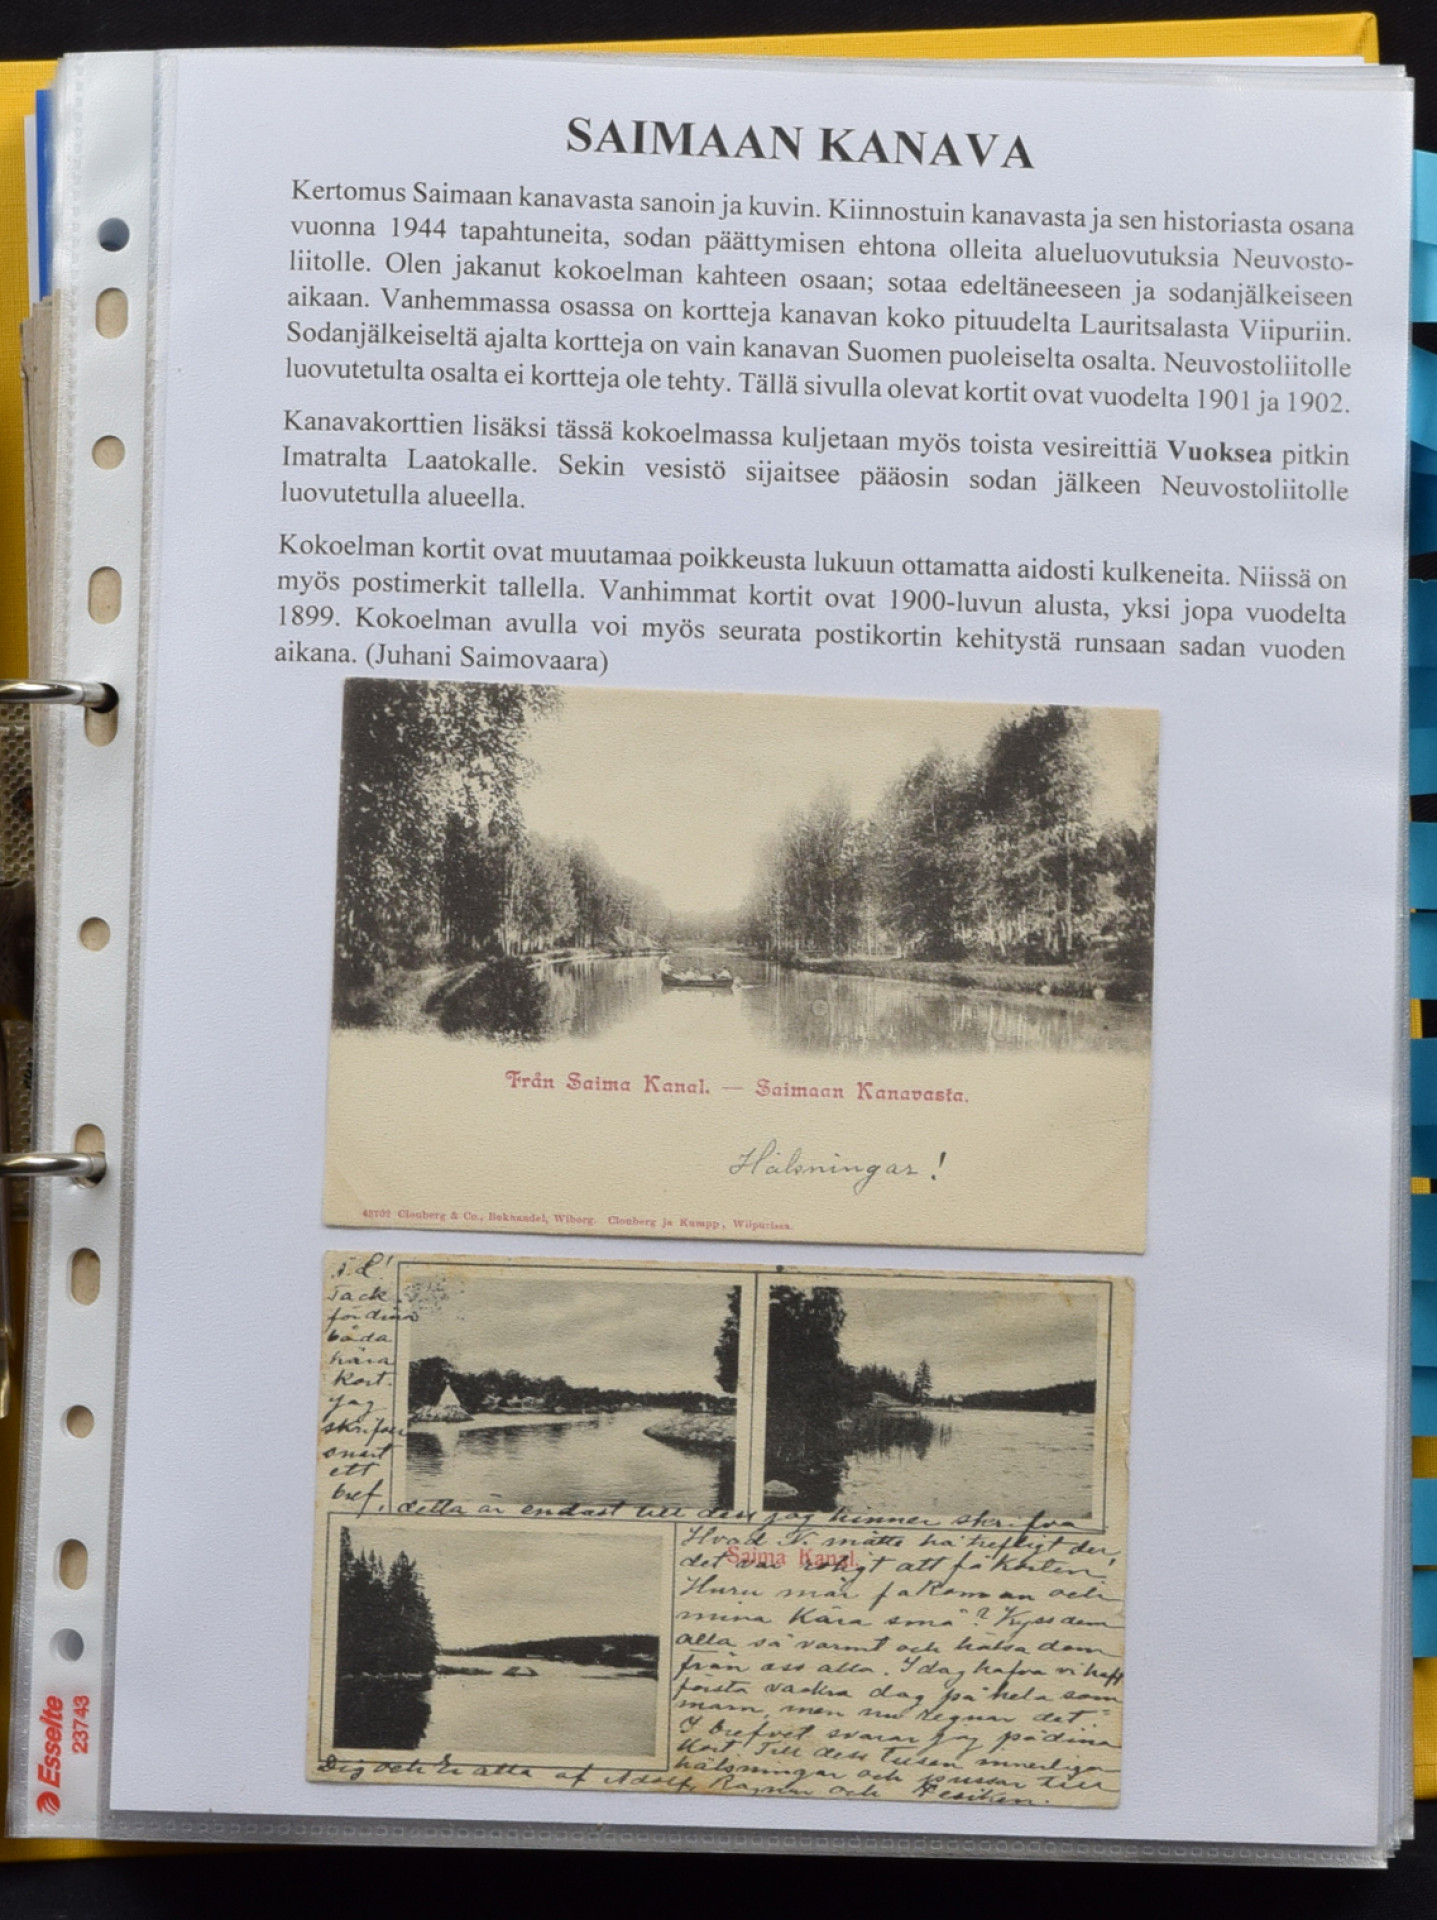 SAIMAAN KANAVA
Kertomus Saimaan kanavasta sanoin ja kuvin. Kiinnostuin kanavasta ja sen historiasta osana
vuonna 1944 tapahtuneita, sodan päättymisen ehtona olleita alueluovutuksia Neuvosto-
liitolle. Olen jakanut kokoelman kahteen osaan; sotaa edeltäneeseen ja sodanjälkeiseen
aikaan. Vanhemmassa osassa on kortteja kanavan koko pituudelta Lauritsalasta Viipuriin.
Sodanjälkeiseltä ajalta kortteja on vain kanavan Suomen puoleiselta osalta. Neuvostoliitolle
luovutetulta osalta ei kortteja ole tehty. Tällä sivulla olevat kortit ovat vuodelta 1901 ja 1902.
Kanavakorttien lisäksi tässä kokoelmassa kuljetaan myös toista vesireittiä Vuoksea pitkin
Imatralta Laatokalle. Sekin vesistö sijaitsee pääosin sodan jälkeen Neuvostoliitolle
luovutetulla alueella.
Kokoelman kortit ovat muutamaa poikkeusta lukuun ottamatta aidosti kulkeneita. Niissä on
myös postimerkit tallella. Vanhimmat kortit ovat 1900-luvun alusta, yksi jopa vuodelta
1899. Kokoelman avulla voi myös seurata postikortin kehitystä runsaan sadan vuoden
aikana. (Juhani Saimovaara)
Från Saima Kanal. — Saimaan Kanavasta.
Hälsningar!
48702 Clouberg & Co., Bokhandel, Wiborg. Clouberg ja Kumpp., Wiipurissa.
Tack
för dina
båda
kära
kort.
Jag
skrifver
snart
ett
bref, detta är endast till dess jag hinner skrifva
Saima Kanal.
Hvad N. måtte ha trefligt der,
det var roligt att få korten.
Huru mår farman och
mina kära små? Kyss dem
alla så varmt och hälsa dem
från oss alla. I dag hafva vi haft
första vackra dag på hela som
marn, men nu regnar det.
I brefvet svarar jag på dina
kort. Till dess tusen innerliga
hälsningar och pussar till
Dig och Er alla af Adolf, Ragnar och
Esselte
23743